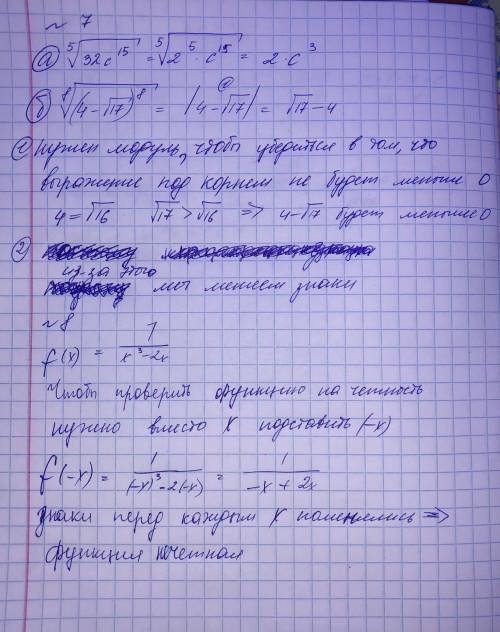 ~ 7
а) ⁵√32c¹⁵ = ⁵√2⁵ · c¹⁵ = 2 · c³
б) ⁸√(4-√17)⁸ = |4-√17| = √17 - 4
① нужен модуль, чтобы убедиться в том, что
выражение под корнем не будет меньше 0
4 = √16 √17 > √16 => 4-√17 будет меньше 0
②
из-за этого
мы меняем знаки
~ 8
f(x) = 1/(x³-2x)
Чтобы проверить функцию на четность
нужно вместо X подставить (-x)
f(-x) = 1/((-x)³-2(-x)) = 1/(-x+2x)
Знаки перед каждым X поменялись =>
функция нечетная